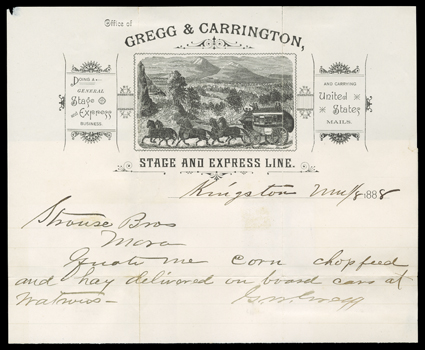 Office of
GREGG & CARRINGTON,
DOING A
GENERAL
Stage
and Express
BUSINESS
AND CARRYING
United
States
MAILS.
STAGE AND EXPRESS LINE.
Kingston 1888
Strouse Bros
Mora
Quote me corn chopfeed
and hay delivered on board cars at
Watrous—
G.W. Gregg